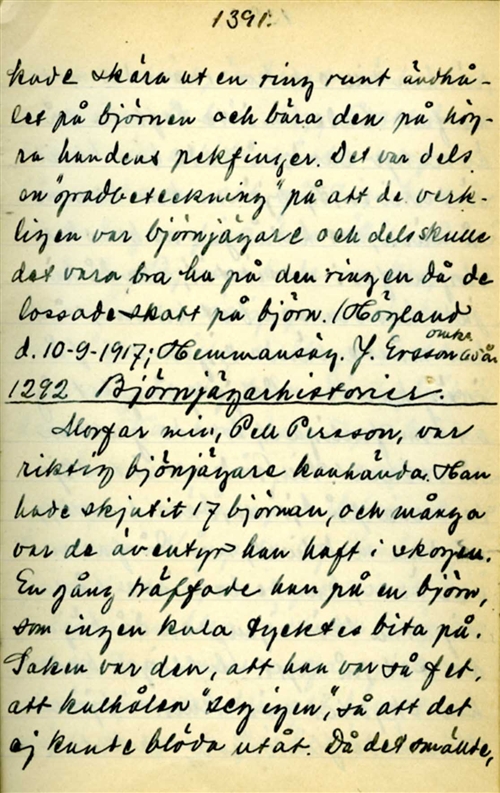 1391.
kade skära ut en ring runt ändhå-
let på björnen och bära den på hög-
ra handens pekfinger. Det var dels
en "gradbeteckning" på att de verk-
ligen var björnjägare och dels skulle
det vara bra ha på den ringen då de
lossade skott på björn. (Högland
d. 10-9-1917; Hemmansäg. J. Ersson omkr. 60 år
1292 Björnjägarhistorier.
Morfar min, Pell Persson, var
riktig björnjägare kanhända. Han
hade skjutit 17 björnan, och många
var de äventyr han haft i skogen.
En gång träffade han på en björn,
som ingen kula tycktes bita på.
Saken var den, att han var så fet,
att kulhålen "seg igen", så att det
ej kunde blöda utåt. Då det smällte,